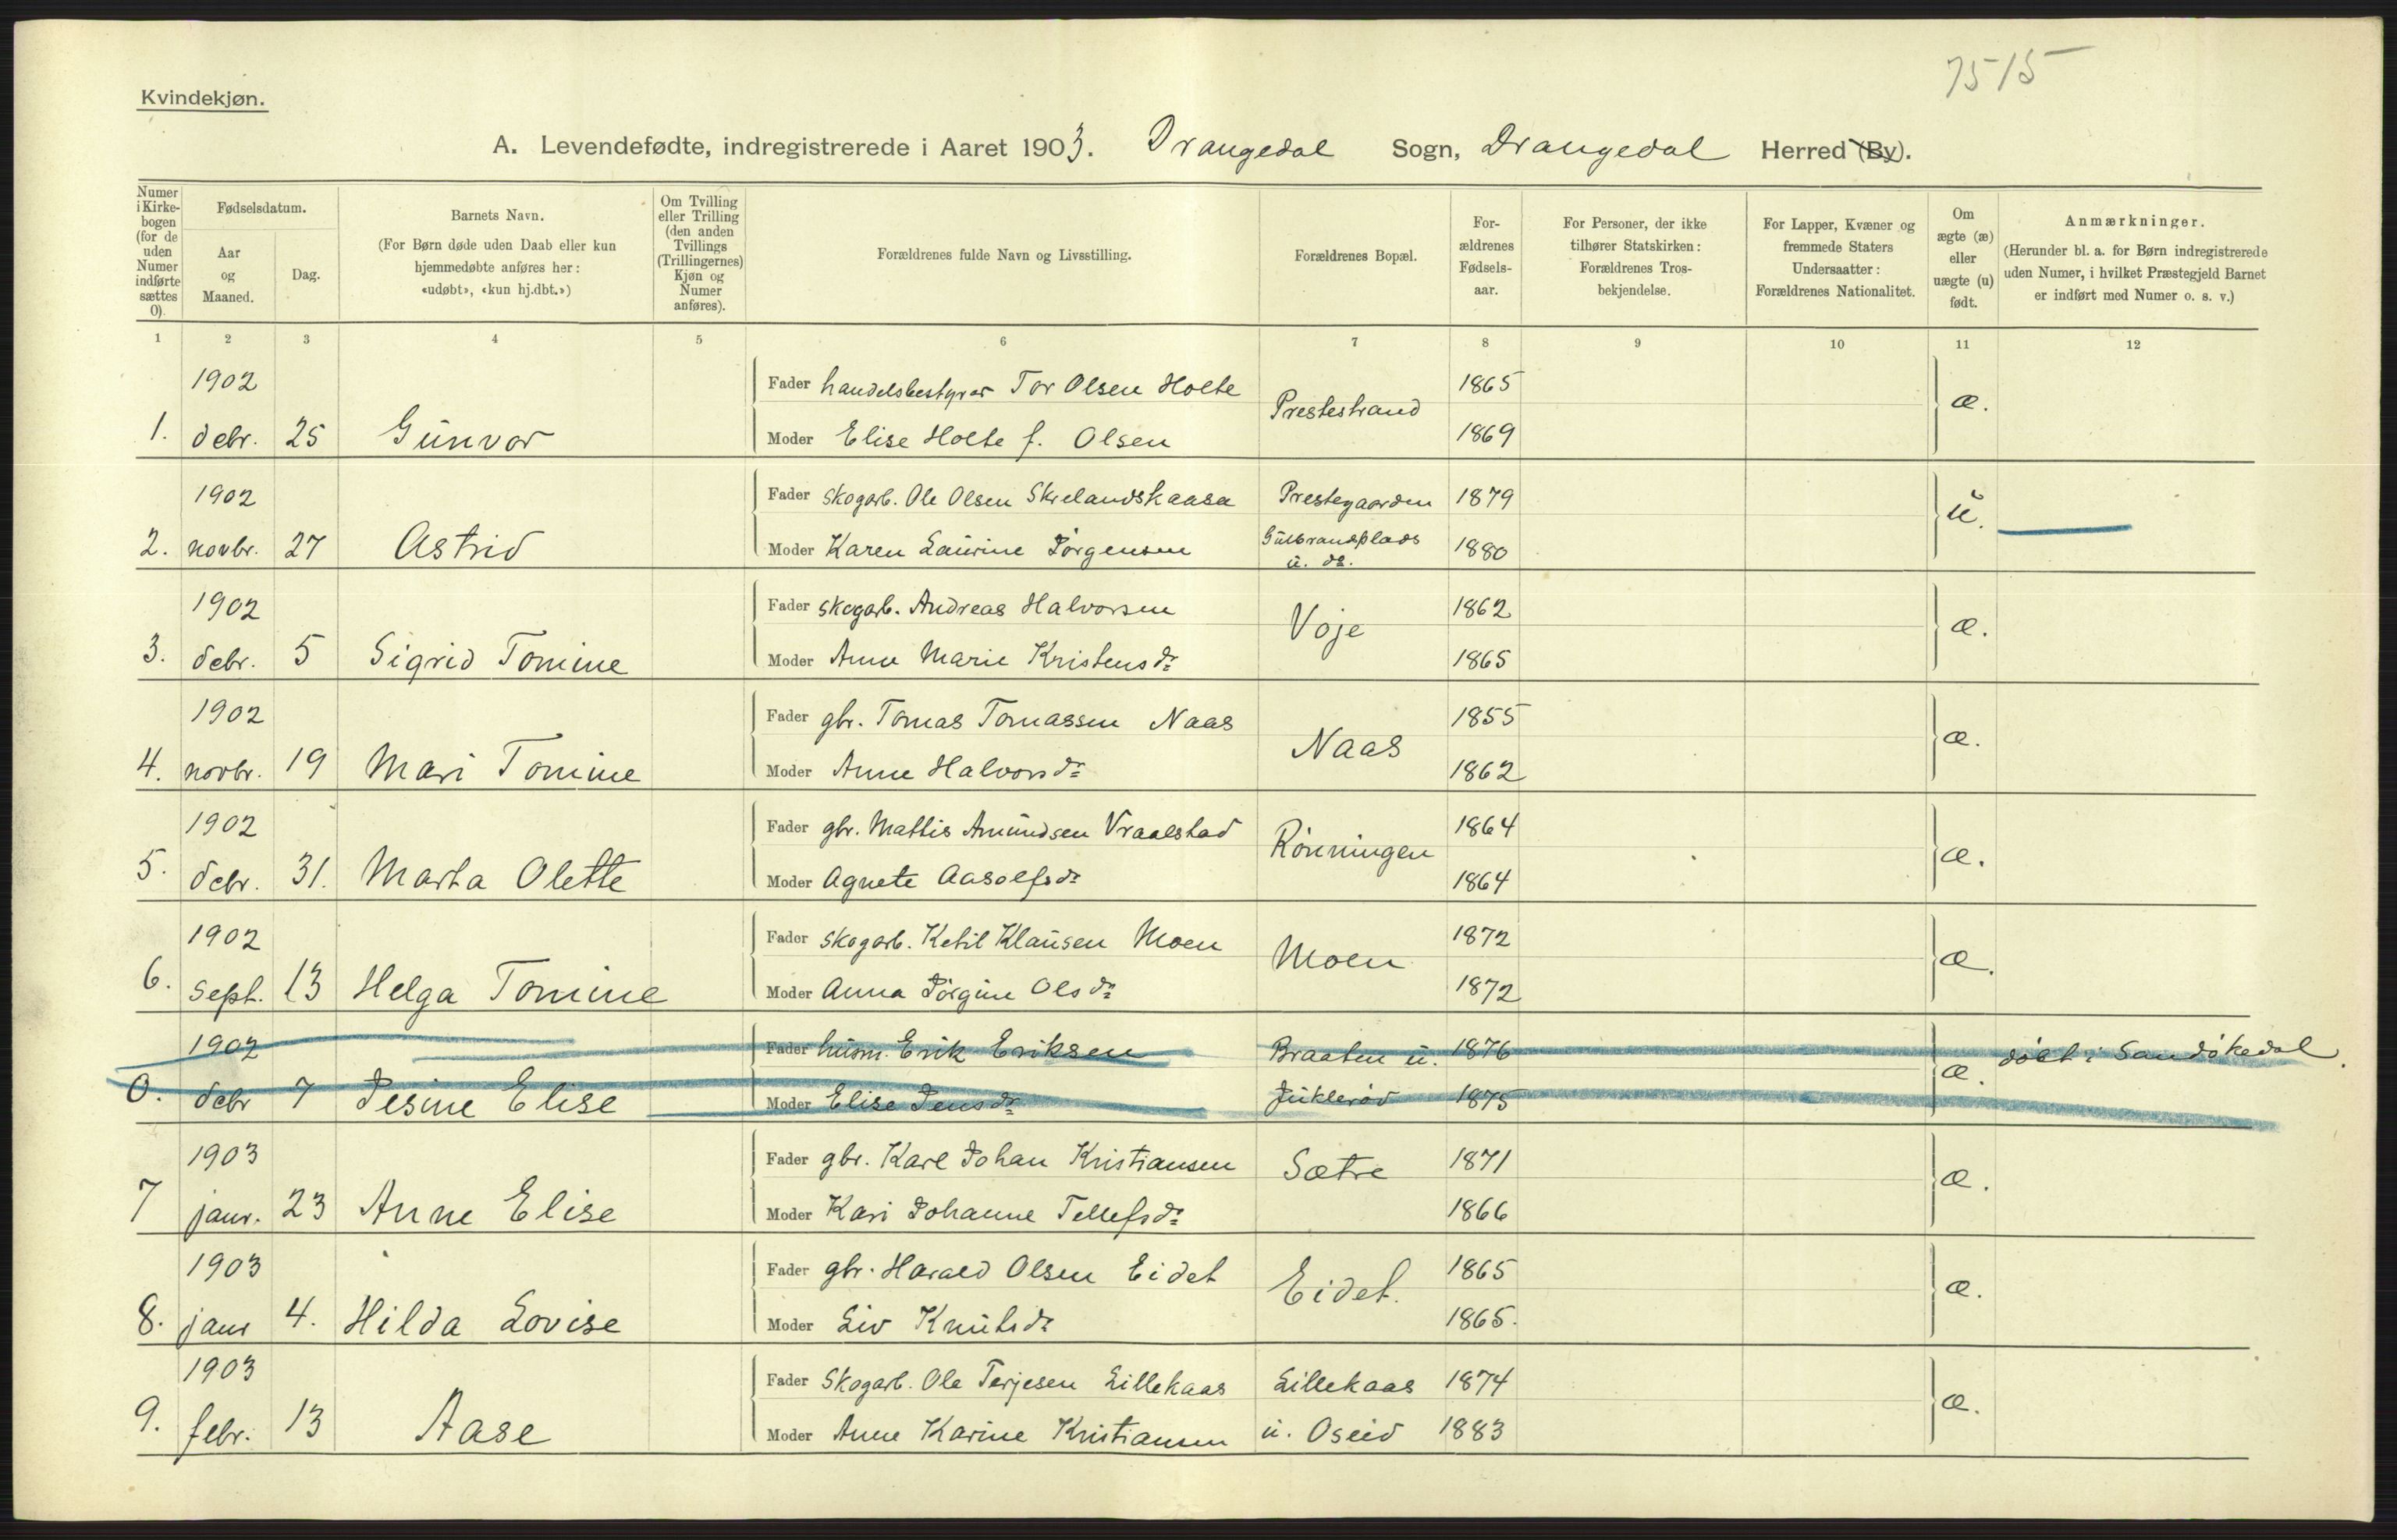 7515
Kvindekjøn.
A. Levendefødte, indregistrerede i Aaret 1903. Drangedal Sogn, Drangedal Herred (By).
Numer i Kirkebogen (for de uden Numer indførte sættes 0).
Fødselsdatum.
Aar og Maaned.
Dag.
Barnets Navn.
(For Børn døde uden Daab eller kun hjemmedøbte anføres her: «udøbt», «kun hj.dbt.»)
Om Tvilling eller Trilling (den anden Tvillings (Trillingernes) Kjøn og Numer anføres).
Forældrenes fulde Navn og Livsstilling.
Forældrenes Bopæl.
For-ældrenes Fødsels-aar.
For Personer, der ikke tilhører Statskirken: Forældrenes Tros-bekjendelse.
For Lapper, Kvæner og fremmede Staters Undersaatter: Forældrenes Nationalitet.
Om ægte (æ) eller uægte (u) født.
Anmærkninger.
(Herunder bl. a. for Børn indregistrerede uden Numer, i hvilket Præstegjeld Barnet er indført med Numer o. s. v.)
1 2 3 4 5 6 7 8 9 10 11 12
1902 Fader handelsbestyrer Tor Olsen Holte Prestestrand 1865 æ.
1. debr. 25 Gunvor Moder Elise Holte f. Olsen 1869
1902 Fader skogarb. Ole Olsen Skrelandskaasa Prestegaarden 1879 u.
2. novbr. 27 Astrid Moder Karen Laurine Jörgensen Gulbrandsplads u. ds. 1880
1902 Fader skogarb. Andreas Halvorsen Voje 1862 æ.
3. debr. 5 Sigrid Tomine Moder Anne Marie Kristensdr 1865
1902 Fader gbr. Tomas Tomassen Naas Naas 1855 æ.
4. novbr. 19 Mari Tomine Moder Anne Halvorsdr 1862
1902 Fader gbr. Mattis Amundsen Vraalstad Rönningen 1864 æ.
5. debr. 31. Marta Olette Moder Agnete Aasolfsdr 1864
1902 Fader skogarb. Ketil Klausen Moen Moen 1872 æ.
6. sept. 13 Helga Tomine Moder Anna Jörgine Olsdr 1872
1902 Fader husm. Erik Eriksen Braaten u. 1876 æ. döbt i Sandökedal.
0. debr 7 Jesine Elise Moder Elise Jensdr Jukleröd 1875
1903 Fader gbr. Karl Johan Kristiansen Sætre 1871 æ.
7 janr. 23 Anne Elise Moder Kari Johanne Tellefsdr 1866
1903 Fader gbr. Harald Olsen Eidet Eidet. 1865 æ.
8. janr 4. Hilda Lovise Moder Liv Knutsdr 1865.
1903 Fader Skogarb. Ole Terjesen Lillekaas Lillekaas 1874 æ.
9. febr. 13 Aase Moder Anne Karine Kristiansen u. Oseid 1883